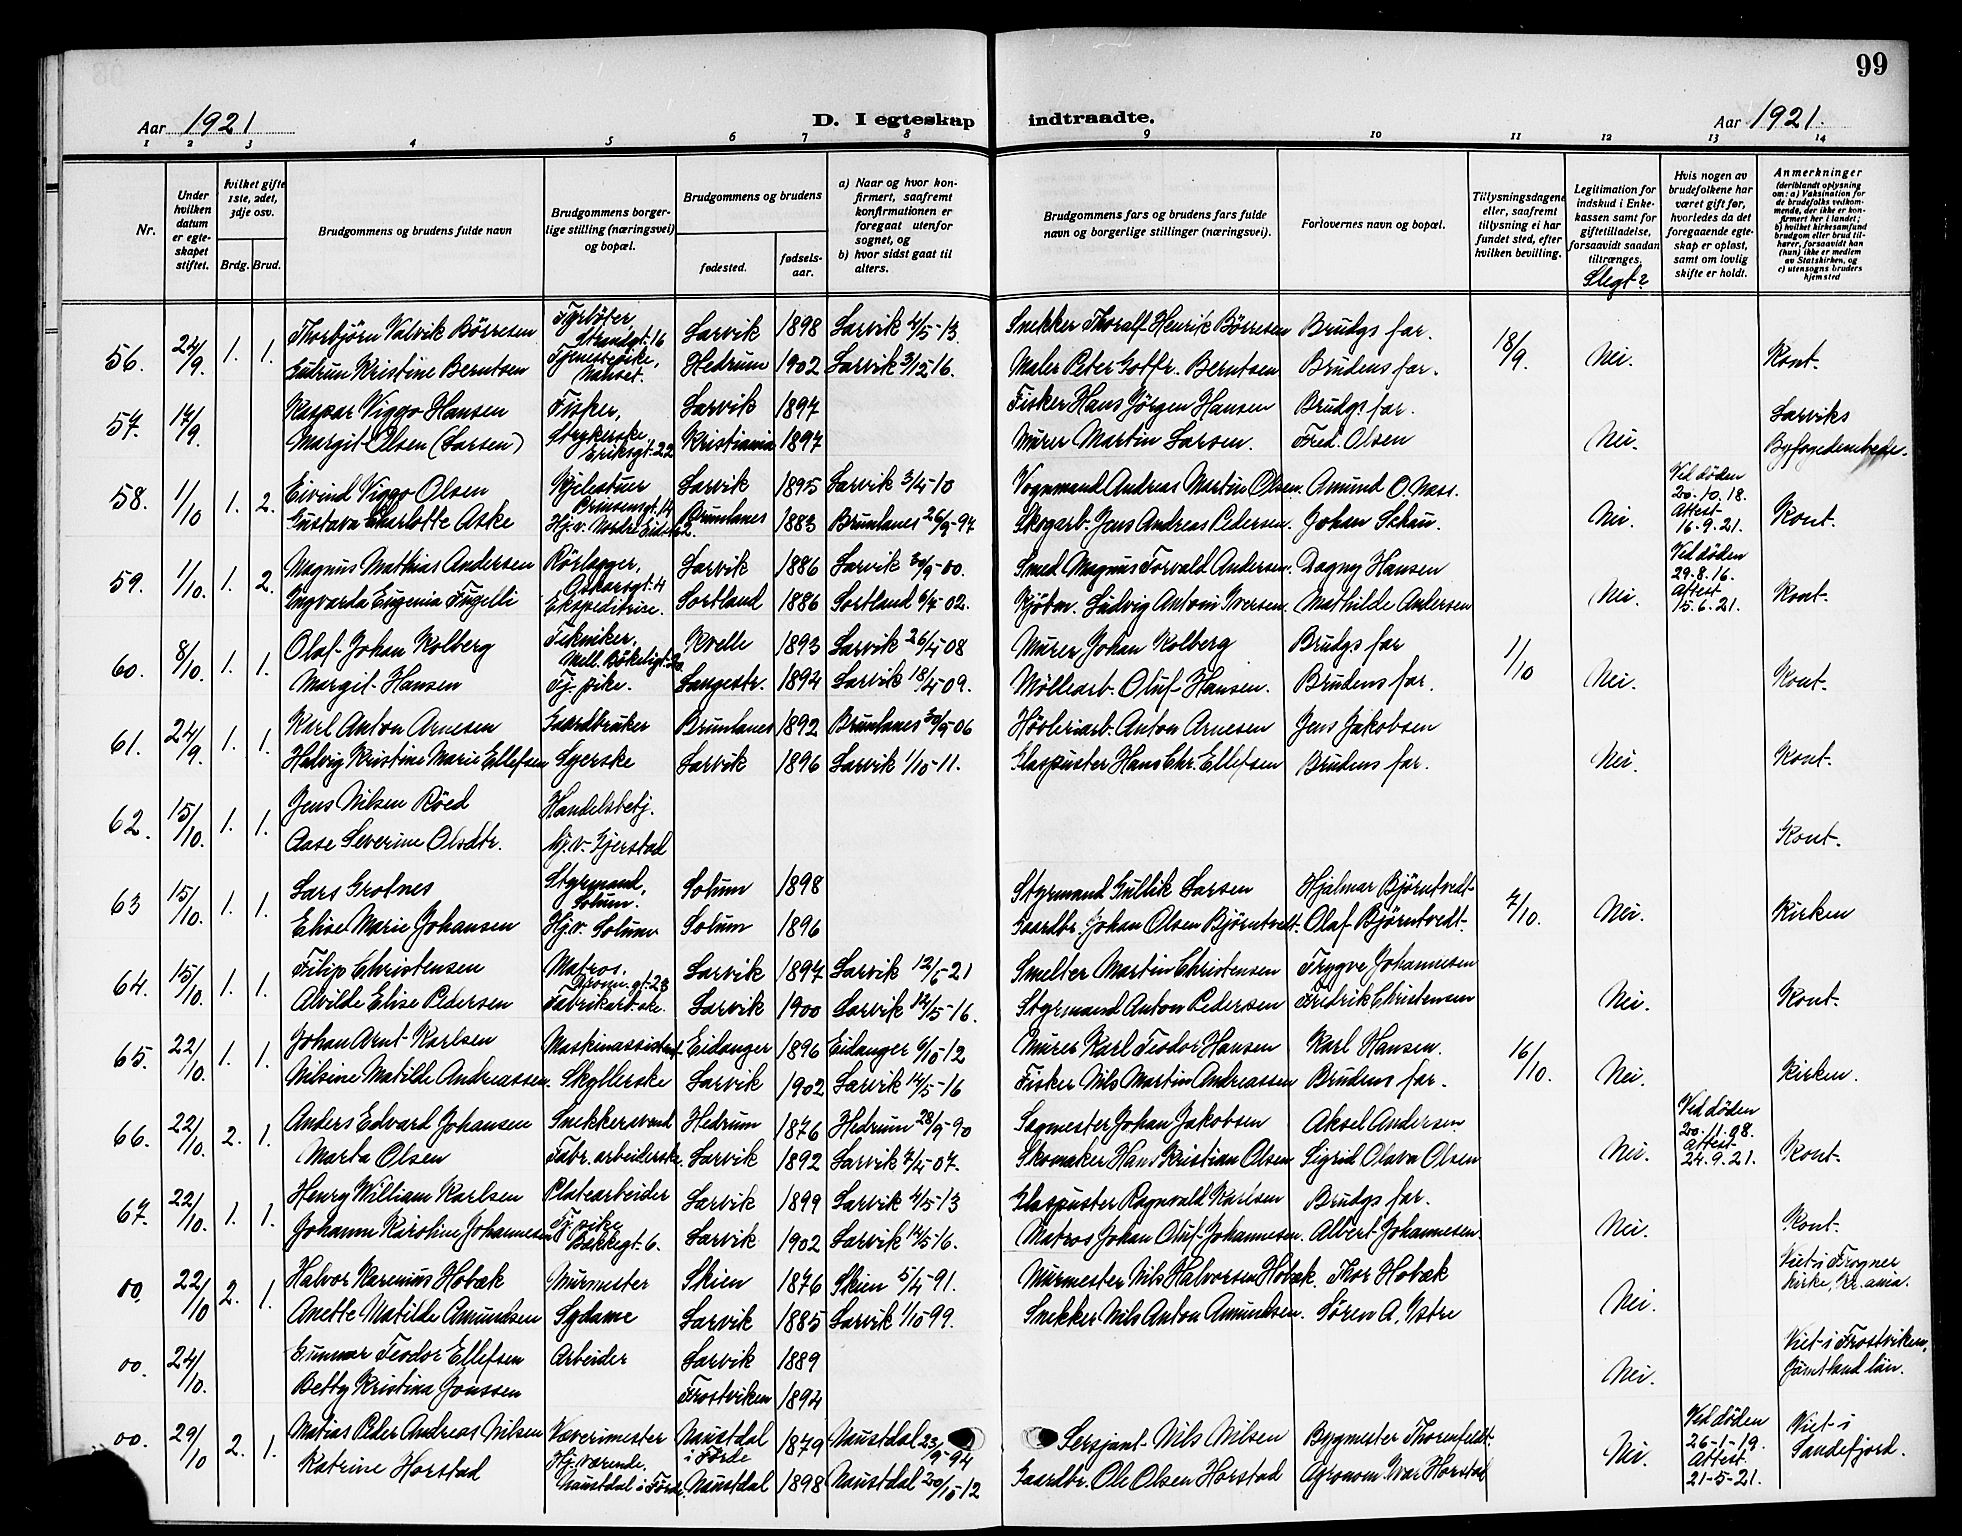 99
Aar 1921 D. I egteskap indtraadte. Aar 1921.
1 2 3 4 5 6 7 8 9 10 11 12 13 14
Nr.
Under hvilken datum er egteskapet stiftet.
hvilket gifte 1ste, 2det, 3dje osv.
Brdg. Brud.
Brudgommens og brudens fulde navn
Brudgommens borgerlige stilling (næringsvei) og bopæl.
Brudgommens og brudens
fødested.
fødselsaar.
a) Naar og hvor konfirmert, saafremt konfirmationen er foregaat utenfor sognet, og
b) hvor sidst gaat til alters.
Brudgommens fars og brudens fars fulde navn og borgerlige stillinger (næringsvei).
Forlovernes navn og bopæl.
Tillysningsdagene eller, saafremt tillysning ei har fundet sted, efter hvilken bevilling.
Legitimation for indskud i Enkekassen samt for giftetilladelse, forsaavidt saadan tiltrænges.
Slegt?
Hvis nogen av brudefolkene har været gift før, hvorledes da det foregaaende egteskap er opløst, samt om lovlig skifte er holdt.
Anmerkninger
(deriblandt oplysning om: a) Vaksination for de brudefolks vedkommende, der ikke er konfirmert her i landet; b) hvilket kirkesamfund brudgom eller brud tilhører, forsaavidt han (hun) ikke er medlem av Statskirken, og c) utensogns bruders hjemsted
56. 24/9. 1. 1. Thorbjörn Valvik Börresen Fyrböter Strandgt. 16 Larvik 1898 Larvik 4/5-13. Snekker Thoralf Henrik Börresen Brudgs far. 18/9. Nei. Kont.
Gudrun Kristine Berntsen Tjenestepike, Nanset. Hedrum 1902 Larvik 3/12 16. Maler Peter Gotfr. Berntsen Brudens far.
57. 17/9. Kaspar Viggo Hansen Fisker, Larvik 1897 Fisker Hans Jörgen Hansen Brudgs far. Nei. Larviks Byfogedembede.
Margit Olsen (Larsen) Strykerske Eriksgt. 22 Kristiania 1897 Murer Martin Larsen. Fred. Olsen
58. 1/10 1. 2. Eivind Viggo Olsen Prinsensgt. 14 Larvik 1895 Larvik 3/4-10 Vognmand Andreas Martin Olsen. Amund O. Næss. Nei. Ved døden 20.10.18. Attest 16.9.21. Kont.
Gustava Charlotte Aske Hjv. Brunlanes 1883 Brunlanes 26/9-97 Skogarb. Jens Andreas Pedersen. Johan Schau.
59. 1/10. 1. 2. Magnus Mathias Andersen Rörlægger, Oskarsgt. 4 Larvik 1886 Larvik 30/9-00. Smed Magnus Torvald Andersen. Dagny Hansen Nei. Ved døden 29.8.16. Attest 15.6.21. Kont.
Ingvarda Eugenia Fugelli Ekspeditrise. Sortland 1886 Sortland 6/7-02. Kjöbm. Ludvig Antoni Iversen. Mathilde Andersen
60. 8/10. 1. 1. Olaf Johan Kolberg Tekniker, Mell. Bökeligt. 20 Kvelle 1893 Larvik 26/4-08 Murer Johan Kolberg Brudgs far 1/10 Nei. Kont.
Margit Hansen Tj. pike. Langestr. 1894 Larvik 18/4-09. Möllearb. Oluf Hansen. Brudens far.
61. 24/9. 1. 1. Karl Anton Arnesen Gaardbruker Brunlanes 1892 Brunlanes 30/9-06 Hövleriarb. Anton Arnesen Jens Jakobsen Nei. Kont.
Hedvig Kristine Marie Ellefsen Syerske Larvik 1896 Larvik 1/10-11. Glaspuster Hans Chr. Ellefsen Brudens far.
62. 15/10. 1. 1. Jens Nilsen Röed Handelsbetj. Kont.
Aase Severine Olsdtr. Hj.v. Gjerstad
63 15/10. 1. 1. Lars Grotnes Styrmand, Solum. Solum 1898 Styrmand Gullik Larsen Hjalmar Björntvedt 7/10. Nei. Kirken
Elise Marie Johansen Hjv. Solum Solum 1896 Gaardbr. Johan Olsen Björntvedt. Olaf Björntvedt.
64. 15/10. 1. 1. Filip Christensen Matros. Larvik 1897 Larvik 12/5-21 Smelter Martin Christensen Trygve Johannesen Nei. Kont.
Alvilde Elise Pedersen Fabrikarb.ske. Larvik 1900 Larvik 14/5-16. Styrmand Anton Pedersen Fredrik Christensen
65. 22/10. 1. 1. Johan Arnt Karlsen Maskinassistent Eidanger 1896 Eidanger 6/10-12 Murer Karl Teodor Hansen Karl Hansen. 16/10. Nei. Kirken.
Nilsine Matilde Andreassen. Skyllerske Larvik 1902 Larvik 14/5-16 Fisker Nils Martin Andreassen Brudens far.
66. 22/10. 2. 1. Anders Edvard Johansen Snekkersvend Hedrum 1876 Hedrum 28/9-90 Sagmester Johan Jakobsen Aksel Andersen Nei. Ved døden 20.11.08. Attest 24.9.21. Kont.
Marta Olsen Fabr. arbeiderske. Larvik 1892 Larvik 7/4-07. Skomaker Hans Kristian Olsen Sigrid Olava Olsen
67. 22/10. 1. 1. Henry William Karlsen Platearbeider Larvik 1899 Larvik 4/5-13 Glaspuster Ragnvald Karlsen Brudgs far. Nei. Kont.
Johanne Karoline Johannesen Tj. pike Bækkegt. 6. Larvik 1902 Larvik 14/5-16. Matros Johan Oluf Johannesen. Albert Johannesen.
00. 22/10 2. 1. Halvor Karenius Hobæk Murmester Skien 1876 Skien 5/4-91. Murmester Nils Halvorsen Hobæk. Thor Hobæk Nei. Viet i Frogner kirke, Kr.ania.
Anette Matilde Amundsen Sydame Larvik 1885 Larvik 1/10-99. Snekker Nils Anton Amundsen. Sören A. Istre
00. 24/10. Gunnar Teodor Ellefsen Arbeider Larvik 1889 Nei. Viet i Frostviken, Jämtland län.
Betty Kristina Jonssen Frostviken 1894
00. 29/10 2. 1. Matias Peder Andreas Nilsen Væverimester Naustdal i Förde 1879 Naustdal 23/9-94 Sersjant Nils Nilsen Bygmester Thorenfeldt. Nei. Ved døden 26-1-19. Attest 21-5-21. Viet i Sandefjord.
Katrine Horstad Hj. værende. Naustdal i Förde. Naustdal 1898 Naustdal 20/10-12 Gaardbr. Ole Olsen Horstad Agronom Ivar Horstad